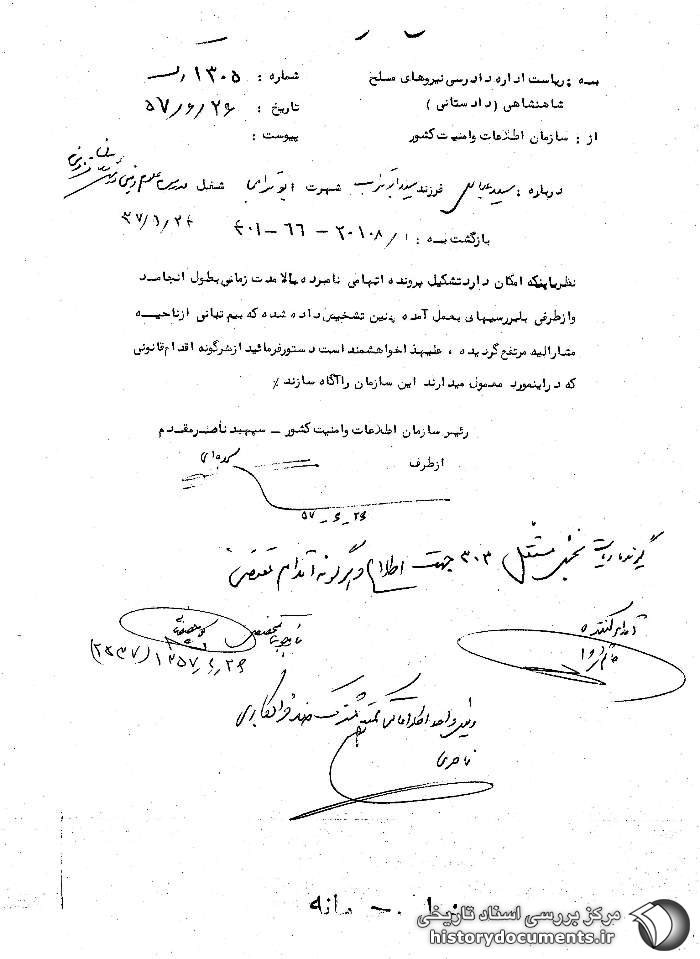 به : ریاست اداره دادرسی نیروهای مسلح
شاهنشاهی (دادستانی)
از : سازمان اطلاعات وامنیت کشور
شماره : ۱۳۰۵
تاریخ : ۵۷/۶/۲۶
پیوست :
درباره : سید عباس فرزند سید ابوتراب شهرت ابوترابی شغل مدرس علوم دینی
بازگشت به : ۴۰۱-۶۶-۲۰۱۰۸/۱
نظرباینکه امکان دارد تشکیل پرونده اتهامی نامبرده بالا مدت زمانی بطول انجامد
وازطرفی بابررسیهای بعمل آمده چنین تشخیص داده شده که بیم تبانی ازناحیه
مشارالیه مرتفع گردیده ، علیهذا خواهشمند است دستور فرمائید ازهرگونه اقدام قانونی
که دراینمورد معمول میدارند این سازمان راآگاه سازند ٪
رئیس سازمان اطلاعات وامنیت کشور ـ سپهبد ناصر مقدم
ازطرف
۵۷-۶-۲۶
بخش مستقل ۳۰۳ جهت اطلاع و هرگونه اقدام مقتضی
اقدام کننده
۱۳۵۷/۶/۲۶ (۲۵۳۷)
کمیته مشترک ضد خرابکاری
ناصری
مرکز بررسی اسناد تاریخی
historydocuments.ir